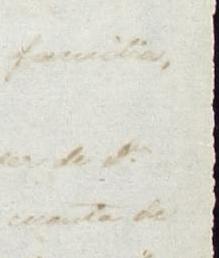 familia,
de Dn
cuenta de